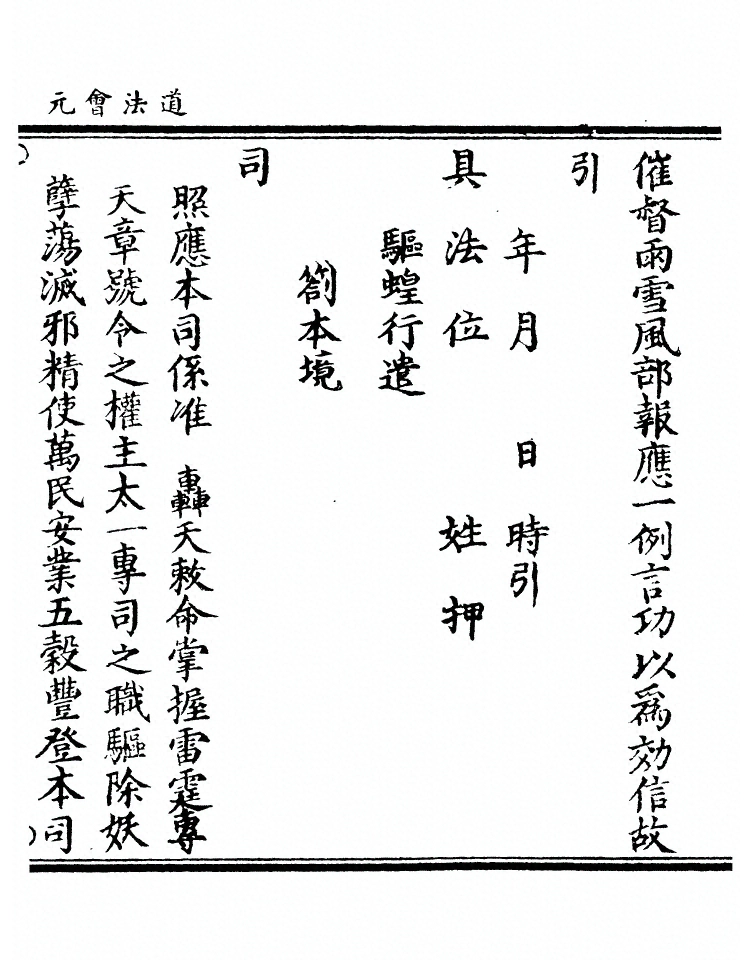 道法會元
催督雨雪風部報應一例言功以爲効信故
引
年 月 日 時引
具 法 位 姓 押
驅蝗行遣
劄本境
司
照應本司係准 轟天敕命掌握雷霆專
天章號令之權主太一專司之職驅除妖
孽蕩滅邪精使萬民安業五穀豐登本司